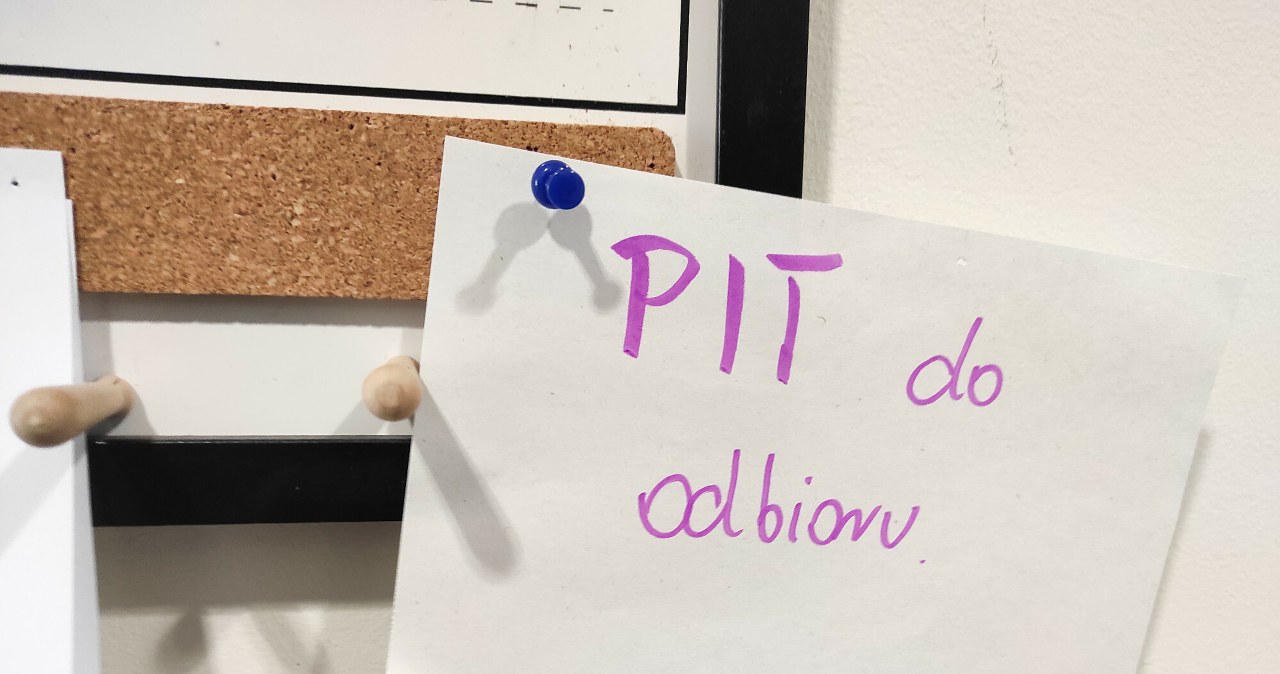 PIT do
odbioru.